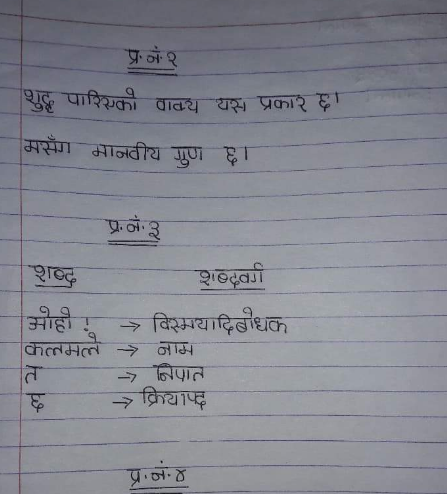 प्र.नं.२
शुद्ध पारिएको वाक्य यस प्रकार छ।
मसँग मानवीय गुण छ।
प्र.नं.३
शब्द शब्दवर्ग
ओहो! → विस्मयादिबोधक
कलमले → नाम
त → निपात
छ → क्रियापद
प्र.नं.४